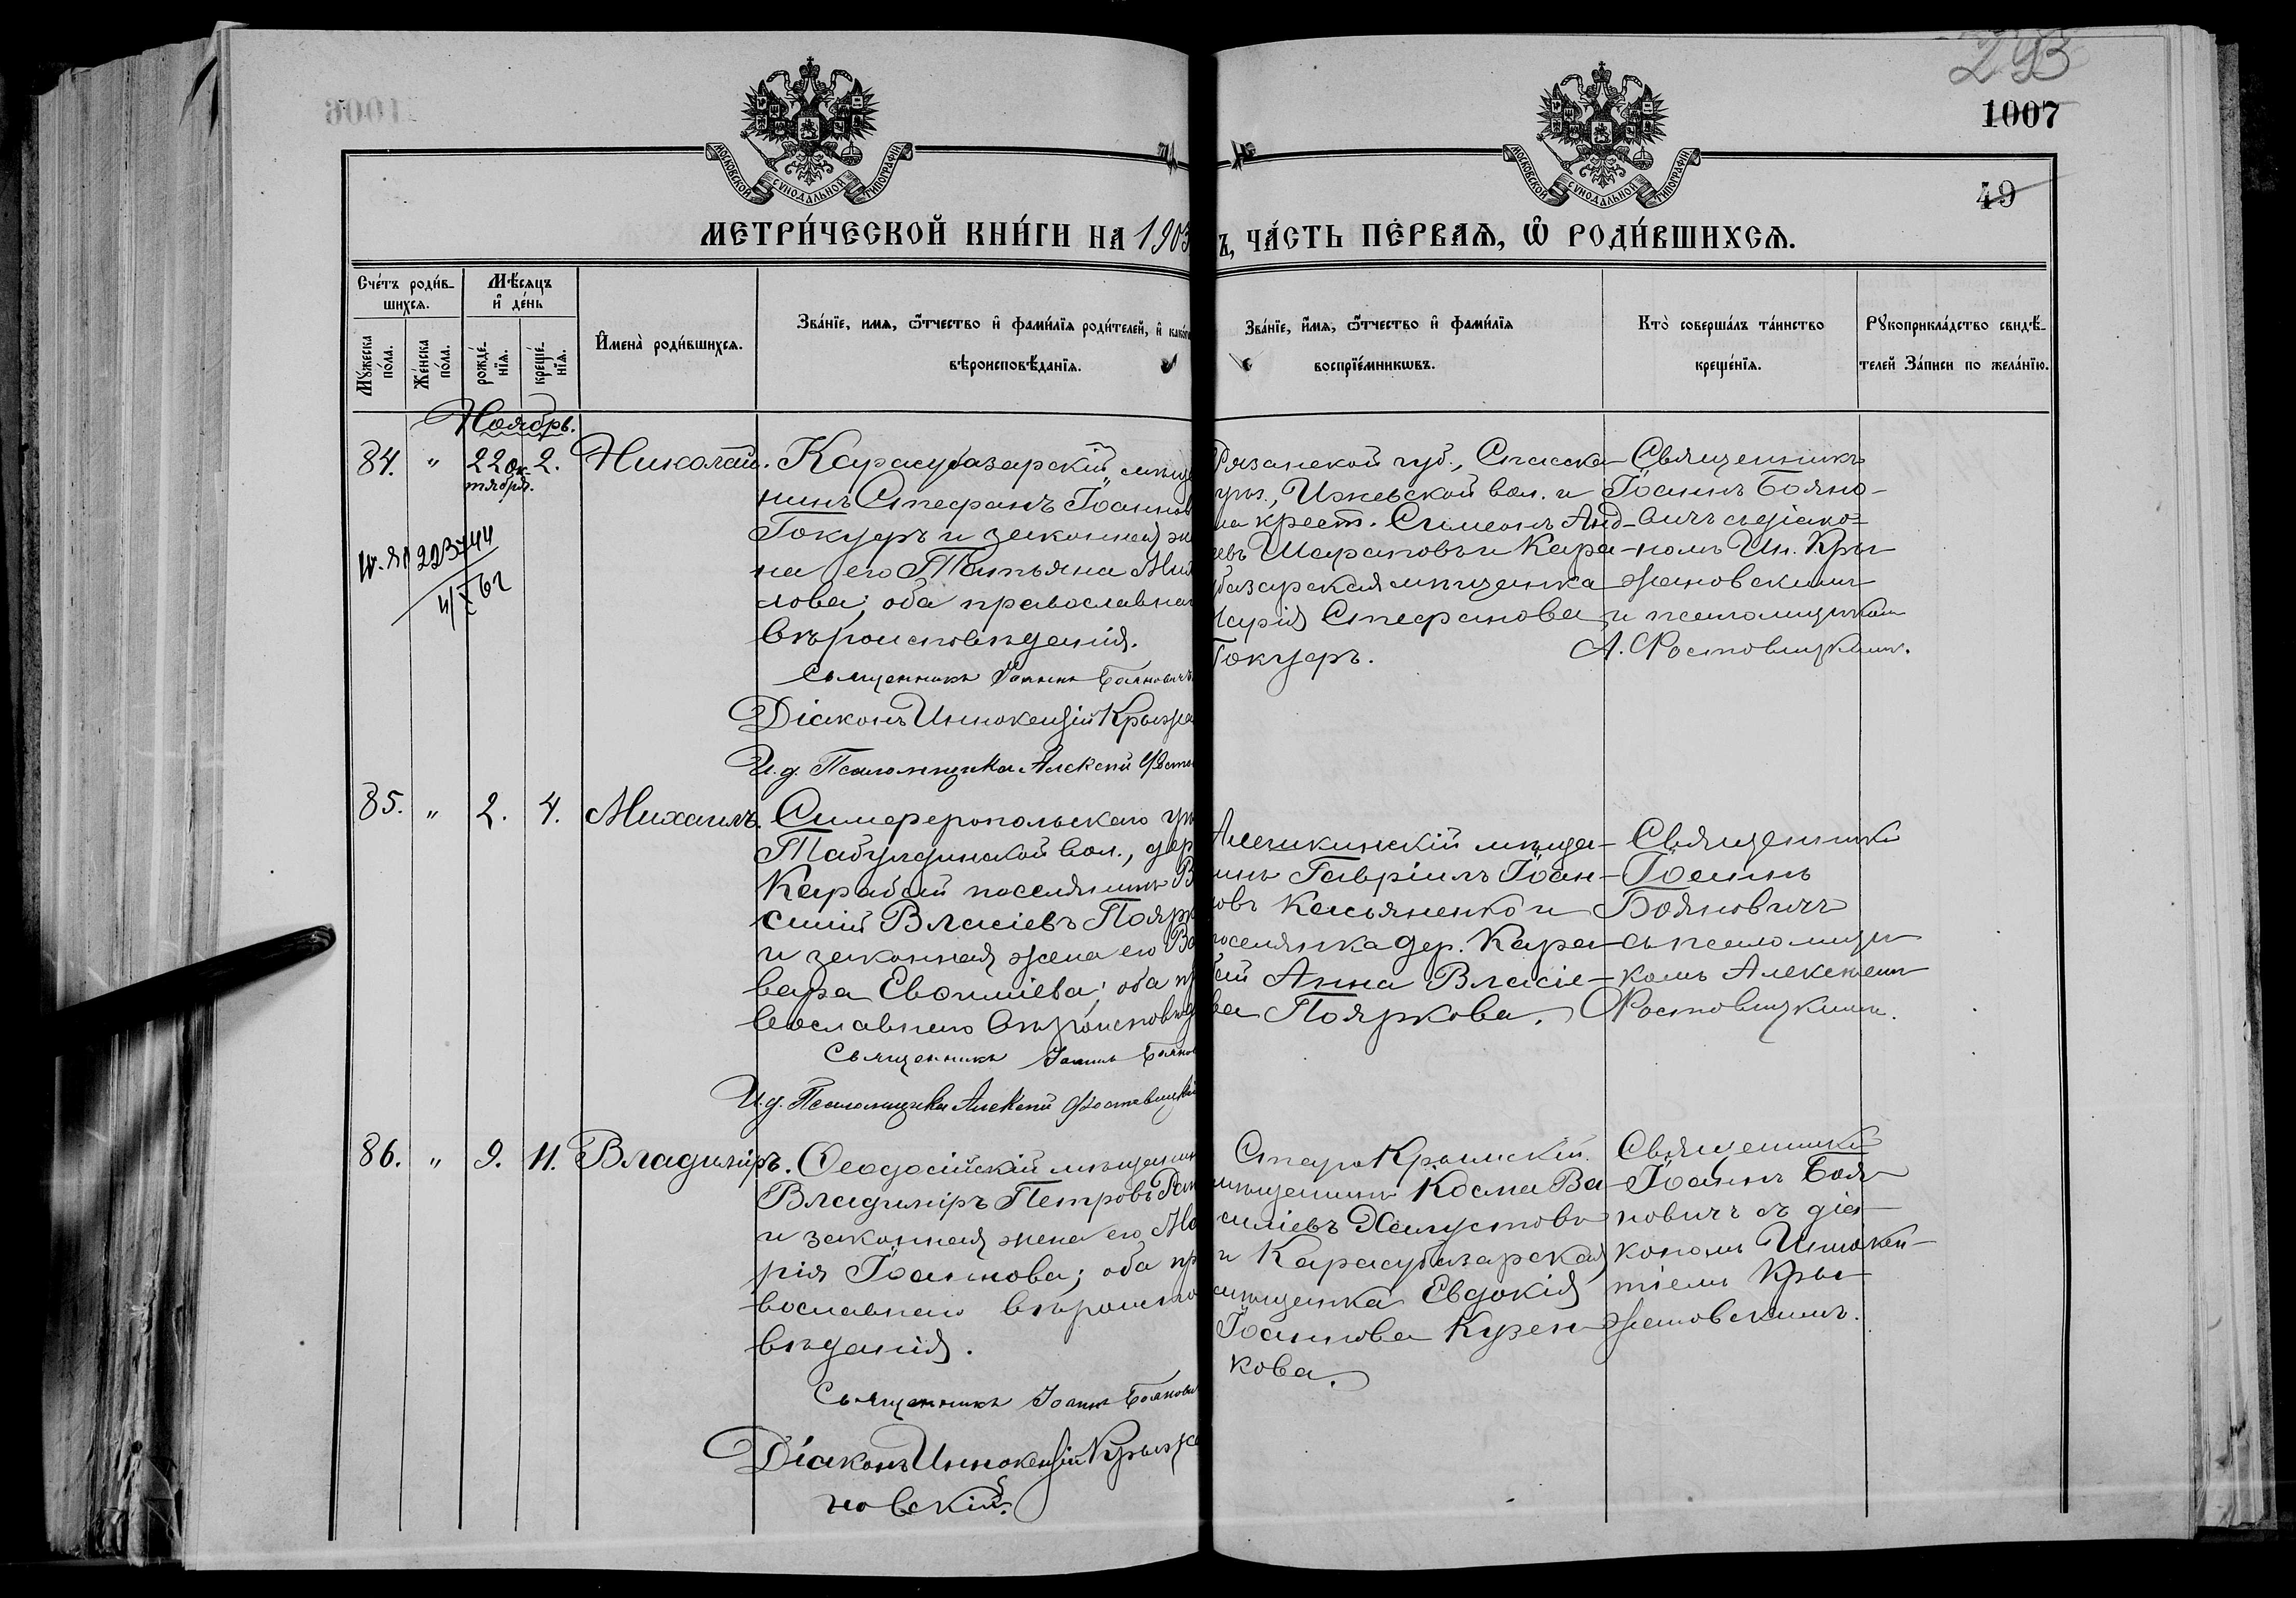 293
1007
1006
49
МОСКОВСКОЙ СѴНОДАЛЬНОЙ ТИПОГРАФІИ
МОСКОВСКОЙ СѴНОДАЛЬНОЙ ТИПОГРАФІИ
МЕТРИ́ЧЕСКОЙ КНИ́ГИ НА 1903
Ъ, ЧА́СТЬ ПЕ́РВАЯ, Ѡ РОДИ́ВШИХСЯ.
Сче́тъ роди́в-
шихся.
Мѣ́сяцъ
и҆ де́нь
Му́жеска
по́ла.
Же́нска
по́ла.
рожде́-
нїя.
креще́-
нїя.
И҆мена̀ роди́вшихся.
Зва́нїе, имя, ѻ҆́тчество и҆ фами́лїя роди́телей, и҆ како́г
вѣроисповѣ́данїя.
Зва́нїе, и҆́мя, ѻ҆́тчество и҆ фами́лїя
воспрїе́мникѡвъ.
Кто̀ соверша́лъ та́инство
креще́нїя.
Рꙋкоприкла́дство свидѣ́-
телей За́писи по жела́нїю.
Ноябрь.
84. " 22 Ок- 2. Николай.
тября.
Карасубазарскій мѣща
нинъ Стефанъ Іоаннов
Токуеръ и законная же
на его Татьяна
лова; оба православна
вѣроисповѣданія.
Священникъ Іоаннъ Бояновичъ
Діаконъ Иннокентій Крыжа
И. д. Псаломщика Алексій Росто
Рязанской губ., Спасска
уѣз., Ижевской вол. и
на крест. Симеонъ Анд-
евъ Шараповъ и Кара-
базарская мѣщанка
арія Стефанова
Токуеръ.
Священникъ
Іоаннъ Бояно-
вичъ съ діако-
номъ Ин. Кры-
жановскимъ
и псаломщикомъ
А. Ростовицкимъ.
223744
4/X 62
85. " 2. 4. Михаилъ.
Симферопольскаго уѣ
Табулдинской вол., дер
Карабай поселянинъ В
силій Власіевъ Поярк
и законная жена его Ва
вара Евѳиміева; оба пр
вославнаго вѣроисповѣд
Священникъ Іоаннъ Боянов
И. д. Псаломщика Алексій Ростовицкій
Алешкинскій мѣща-
инъ Гавріилъ Іоан-
овъ Касьяненко и
поселянка дер. Кара-
бай Анна Власіе-
ва Пояркова.
Священникъ
Іоаннъ
Бояновичъ
съ псаломщи-
комъ Алексѣемъ
Ростовицкимъ.
86. " 9. 11. Владиміръ.
Ѳеодосійскій мѣщанин
Владиміръ Петровъ
и законная жена его Ма
рія Іоаннова; оба пр
вославнаго вѣроиспо
вѣданія.
Священникъ Іоаннъ Боянови
Діаконъ Иннокентій Крыжа
новскій.
СтароКрымскій
мѣщанинъ Косма Ва-
силіевъ Халустовъ
и Карасубазарская
мѣщанка Евдокія
Іоаннова Курен-
кова.
Священникъ
Іоаннъ Боя-
новичъ съ діа-
кономъ Иннокен-
тіемъ Кры-
жановскимъ.